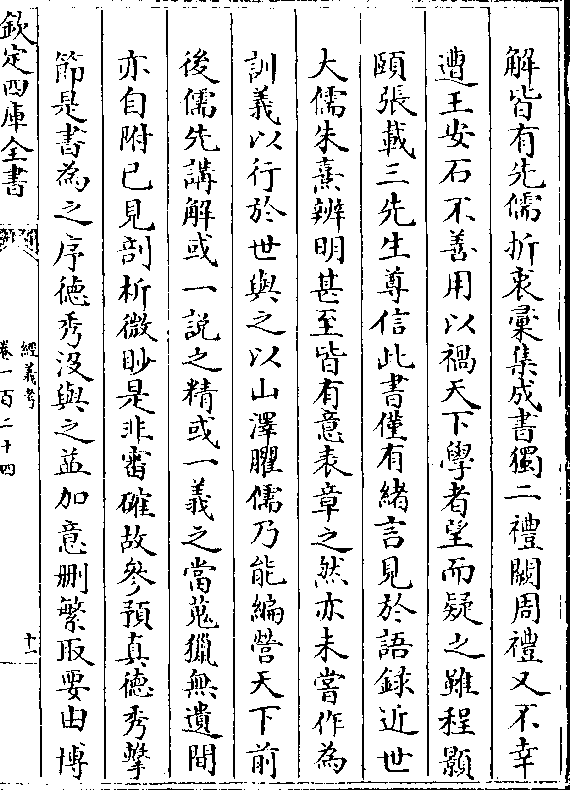 解皆有先儒折衷彚集成書獨二禮闕周禮又不幸
遭王安石不善用以禍天下學者望而疑之雖程顥
頤張載三先生尊信此書僅有緒言見於語錄近世
大儒朱熹辨明甚至皆有意表章之然亦未嘗作為
訓義以行於世與之以山澤臞儒乃能編營天下前
後儒先講解或一說之精或一義之當蒐獵無遺間
亦自附已見剖析微眇是非審確故參預真德秀擊
節是書為之序德秀沒與之益加意刪繁取要由博
欽定四庫全書
經義考
卷一百二十四
十一